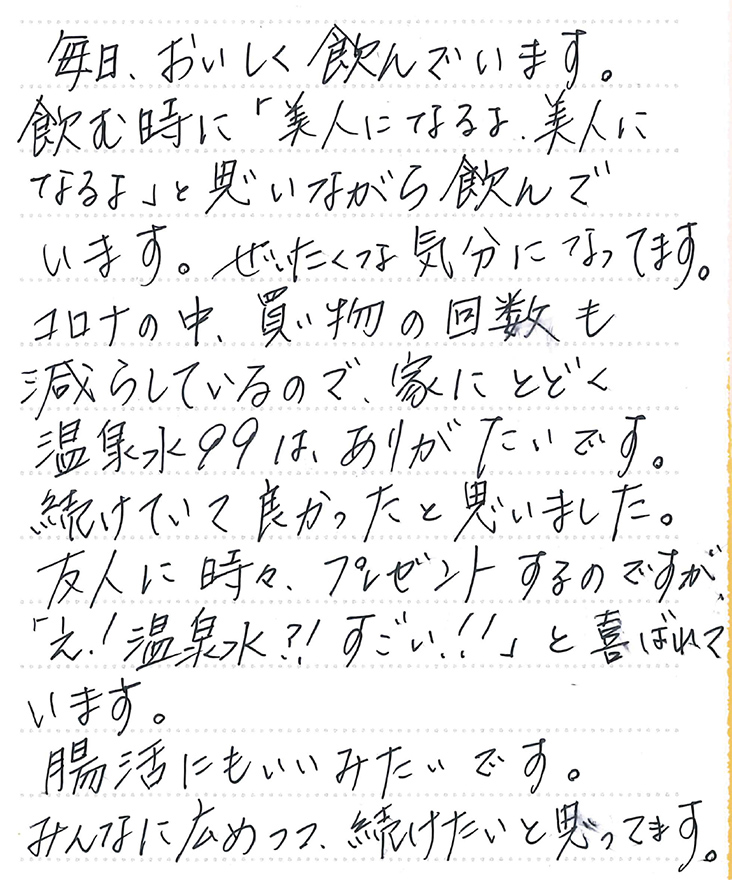 毎日、おいしく飲んでいます。
飲む時に「美人になるよ、美人に
なるよ」と思いながら飲んで
います。ぜいたくな気分になってます。
コロナの中、買い物の回数も
減らしているので、家にとどく
温泉水99は、ありがたいです。
続けていて良かったと思いました。
友人に時々、プレゼントするのですが、
「え!温泉水?!すごい!!」と喜ばれて
います。
腸活にもいいみたいです。
みんなに広めつつ、続けたいと思ってます。